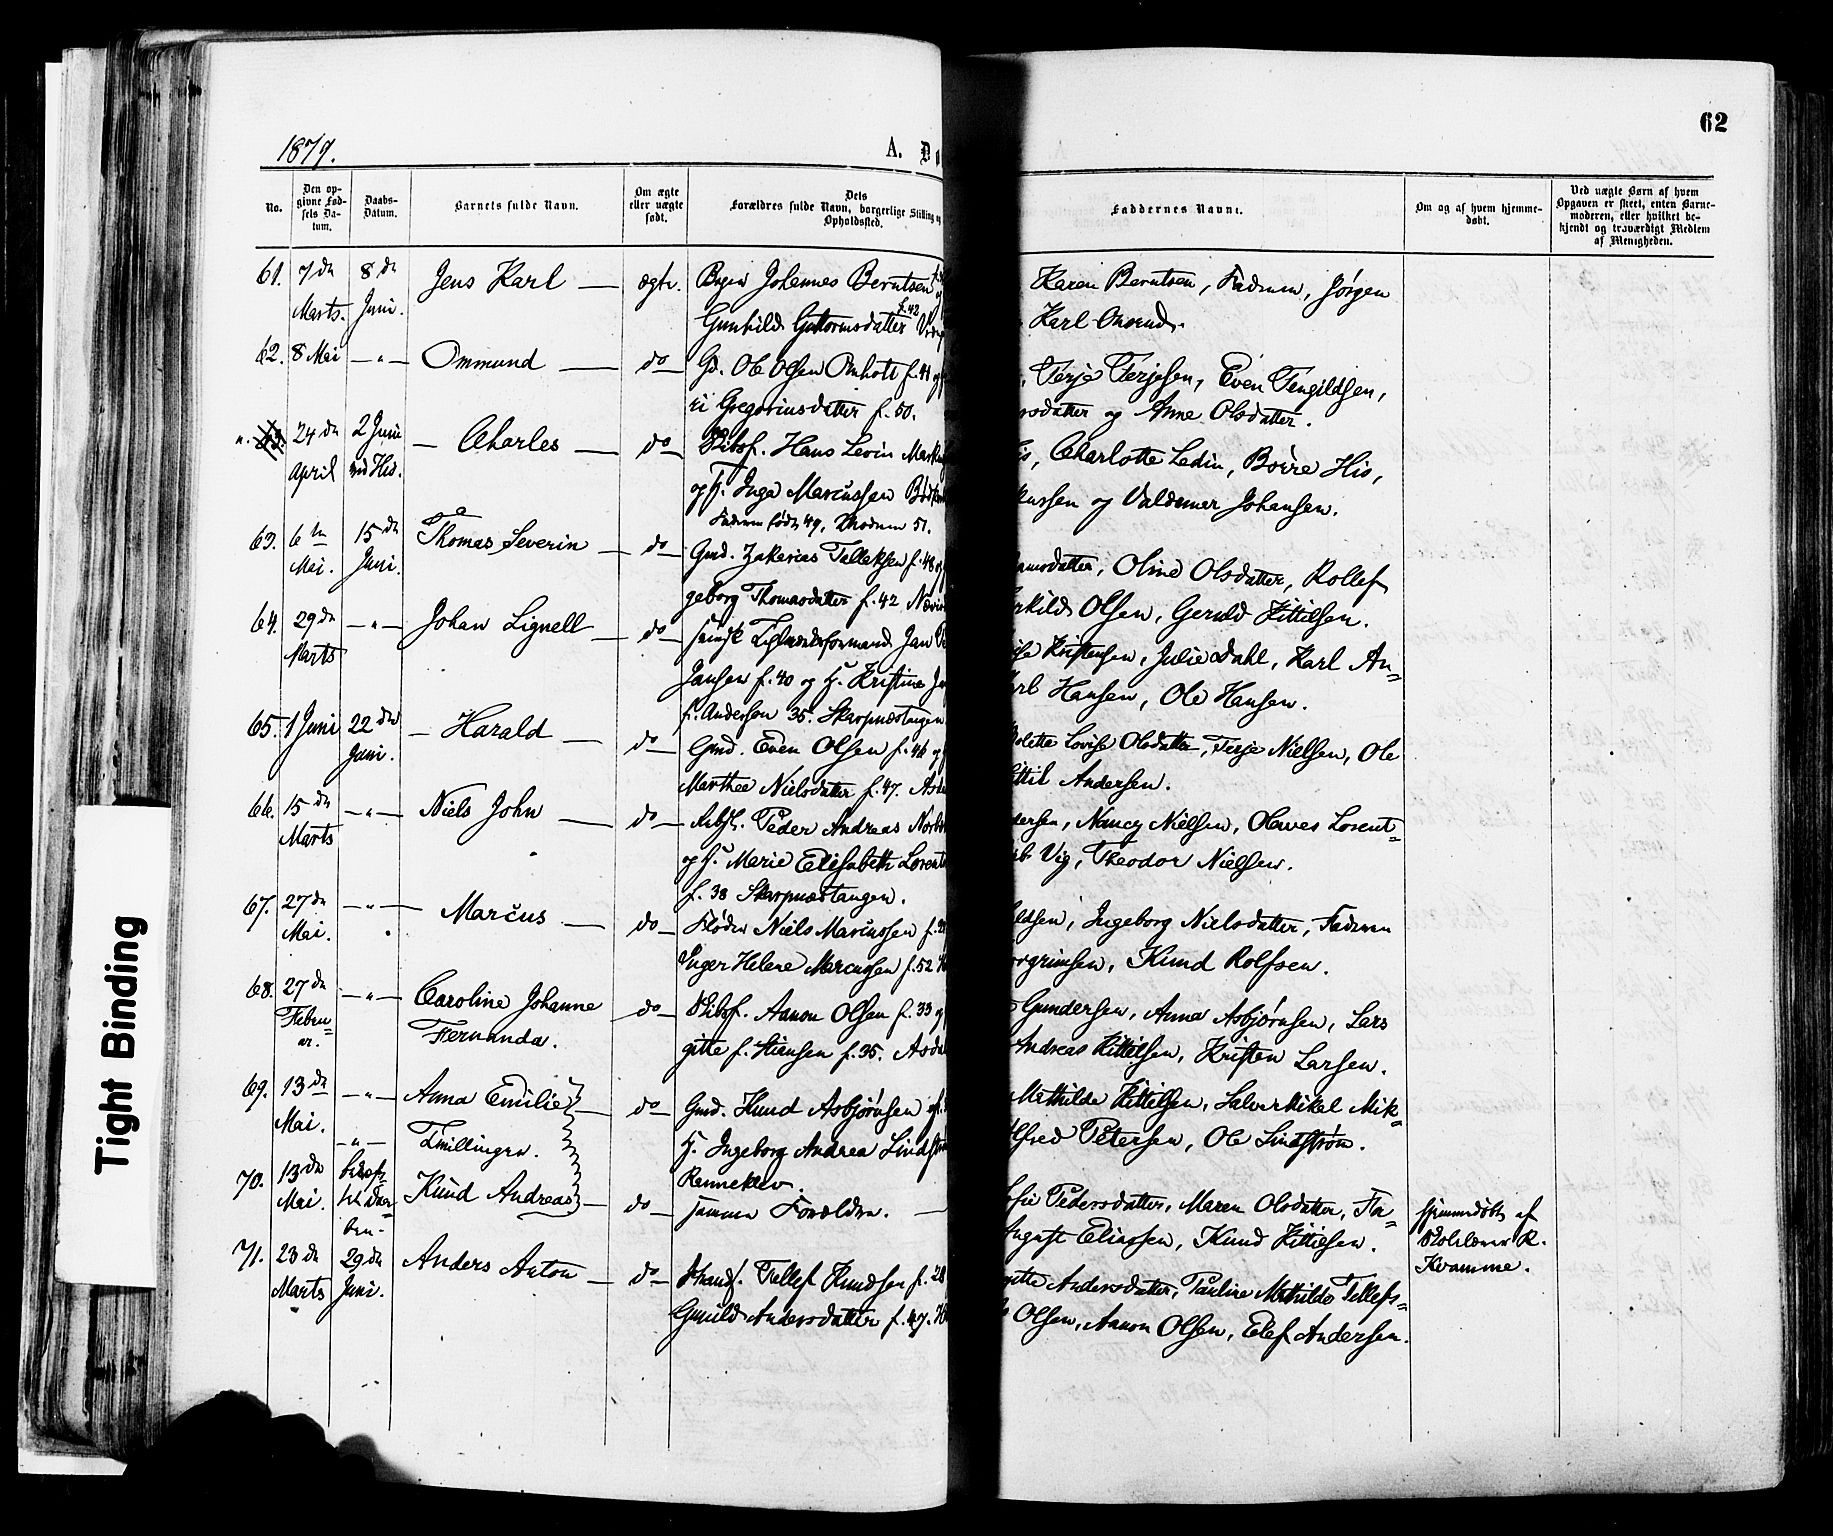 62
1879.
A. Do
No.
Den op-
givne Fød-
sels Da-
tum.
Daabs-
Datum.
Barnets fulde Navn.
Om ægte
eller uægte
født.
Dets
Forældres fulde Navn, borgerlige Stilling og
Opholdssted.
Faddernes Navne.
Om og af hvem hjemme-
døbt.
Ved uægte Børn af hvem
Opgaven er skeet, enten Barne-
moderen, eller hvilket be-
kjendt og troværdigt Medlem
af Menigheden.
61. 7 de 8 de Jens Karl — ægte. Johannes Berntsen
Marts. Juni. Gunhild Guttormsdatter f. 42
Karen Berntsen, Faderen, Jørgen
Karl
62. 8 Mai —„— Ommund — do — Gd. Ole Olsen f. 41 og
ri Gregoriusdatter f. 50.
Terje Terjesen, Even Tengildsen,
rsdatter og Anne Olsdatter.
24 de 2 Juni — Charles — do — Skibsf. Hans Levin
April ved His. og H. Inga Marcussen
Faderen født 49, Moderen 51.
is, Charlotte Ledin, Børre His,
kussen og Valdemar Johansen.
63. 6 te 15 de Thomas Severin — do — Gmd. Zakarias Tallaksen f. 48 og
Mai. Juni. geborg Thomasdatter f. 42
amsdatter, Oline Olsdatter, Rollef
rkild Olsen, Geruld Kittilsen.
64. 29 de —„— Johan Lignell — do — Jan
Marts Jansen f. 40 og H. Kristine
f. Anderson 35. Skarpnæstangen
Kristensen, Julie Dahl, Karl An=
arl Hansen, Ole Hansen.
65. 1 Juni 22 de — Harald — do — Gmd. Even Olsen f. 46 og
Juni. Marthea Nielsdatter f. 47.
olette Lovise Olsdatter, Terje Nielsen, Ole
ittil Andersen.
66. 15 de —„— Niels John — do — Arbf. Peder Andreas
Marts og H. Marie Elisabeth
f. 38 Skarpnæstangen.
dersen, Nancy Nielsen, Olaves Lorent=
Vig, Theodor Nielsen.
67. 27 de —„— Marcus — do — Niels Marcussen f.
Mai. Inger Helene Marcussen f. 52
ldsen, Ingeborg Nielsdatter, Faderen
orgrimsen, Knud Rolfsen.
68. 27 de —„— Caroline Johanne do — Skibsf. Aanon Olsen f. 33 og
Febru= Fernanda. gitte f. Stiansen f. 35.
ar.
Gundersen, Anna Asbjørnsen, Lars
Andreas Kittilsen, Kristen Larsen.
69. 13 de —„— Anna Emilie — do — Gmd. Knud Asbjørnsen
Mai. —„— Tvillinger. H. Ingeborg Andrea
Renneklev.
Mathilde Kittilsen, Salve Mikal Mik=
lfred Petersen, Ole Lindstrøm.
70. 13 de Knud Andreas — do — samme Forældre. —
Mai.
Pedersdatter, Maren Olsdatter, Fa=
August Eliassen, Knud Kittilsen.
Hjemmedøbt af
Skolelærer R.
Kvamme.
71. 23 de 29 de Anders Anton — do — Tellef Knudsen f. 28
Marts Juni. Gunild Andersdatter f. 47.
gitte Andersdatter, Pauline Mathilde Tellefs=
Olsen, Aanon Olsen, Elef Andersen.
Tight Binding